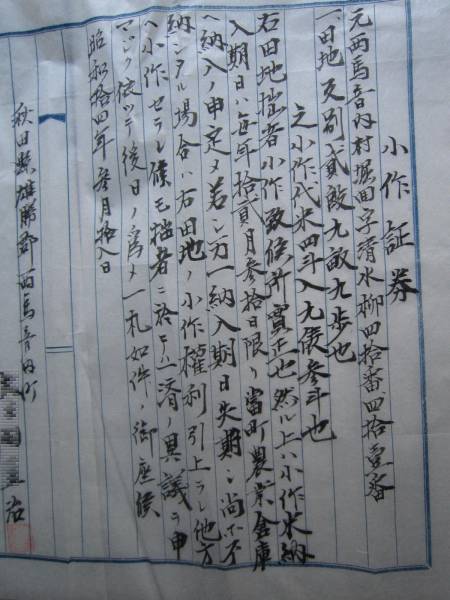 小作証券
元西馬音内村堀田字清水柳四拾番四拾壹番
一田地反別貳畝九畝九歩也
之小作代米四斗入九俵参斗也
右田地拙者小作致候所實正也然ル上ハ小作米納
入期日ハ毎年拾貳月参拾日限リ當町農業倉庫
ヘ納入ノ申定メ若シ万一納入期日失期シ尚ホ不
納シタル場合ハ右田地ノ小作權利引上ラレ他方
ヘ小作セラレ候モ拙者ニ於テ一済ノ異議ヲ申
マジク依ツテ後日ノ爲メ一札如件ノ御座候
昭和拾四年参月拾八日
秋田縣雄勝郡西馬音内町
治